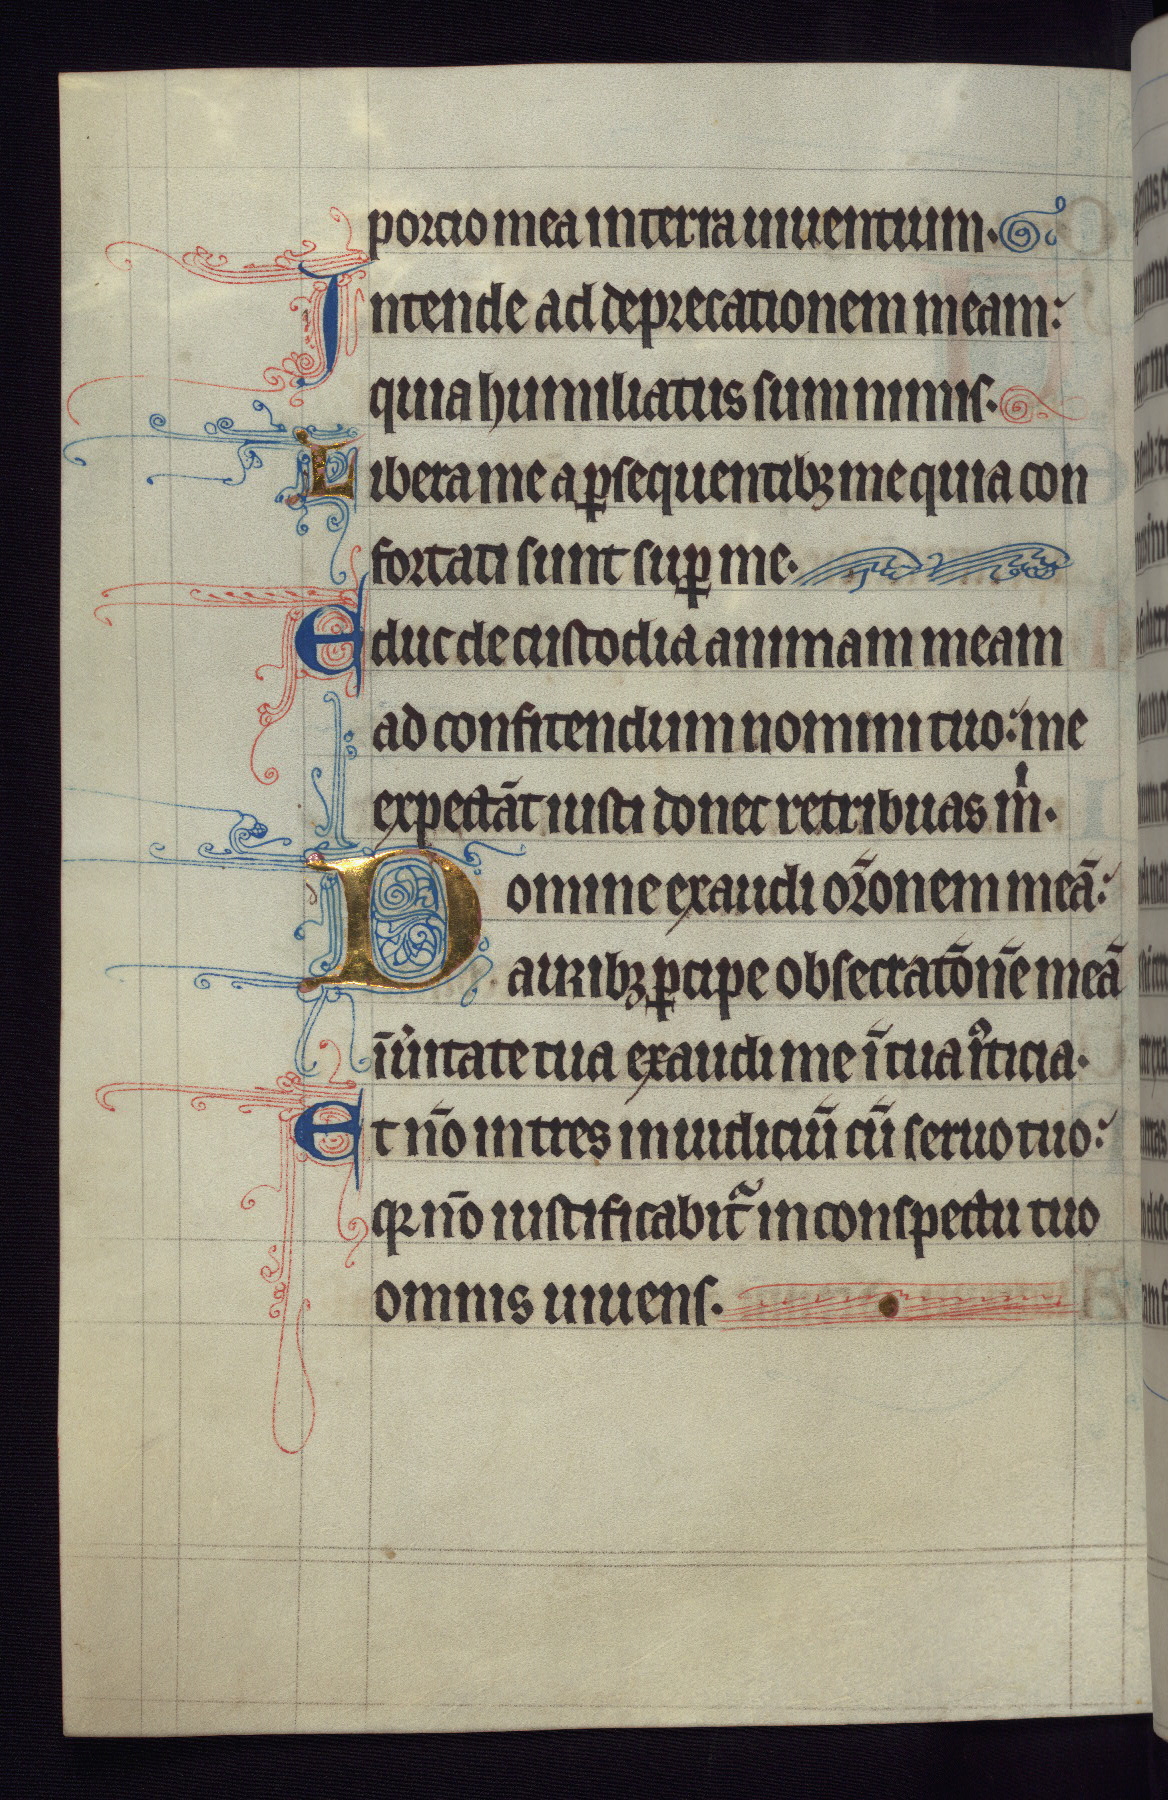 porcio mea in terra uiuentium.
Intende ad deprecationem meam:
quia humiliatus sum nimis.
Libera me a ꝑsequentibꝫ me quia con
fortati sunt suꝑ me.
Educ de custodia animam meam
ad confitendum nomini tuo: me
expectāt iusti donec retribuas m̍.
Domine exaudi or̄onem meā:
auribꝫ ꝑcipe obsecratōnē meā
ī ūitate tua exaudi me ī tua iͥticia.
Et nō intres in iudiciū cū seruo tuo:
qꝛ nō iustificabit᷑ in conspectu tuo
omnis uiuens.